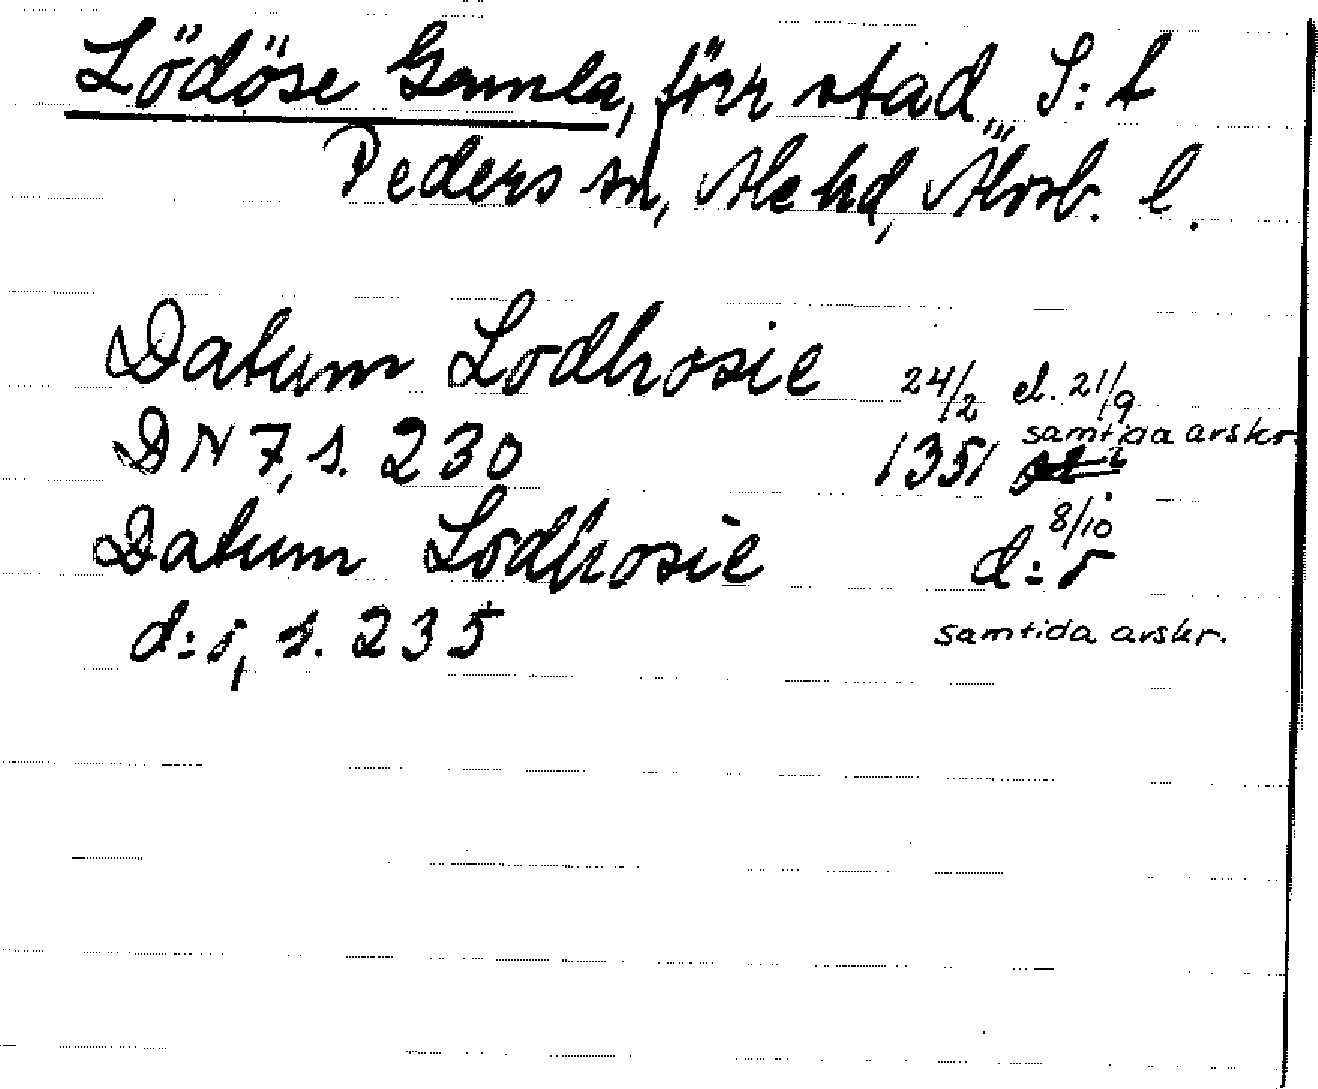 Lödöse Gamla, förr stad, S:t
Peders sn, Ale hd, Älvsb. l.
Datum Lodhosie 24/2 el. 21/9
samtida avskr.
DN 7, s. 230 1351
Datum Lodhosie 8/10 d:o
d:o, s. 235 samtida avskr.